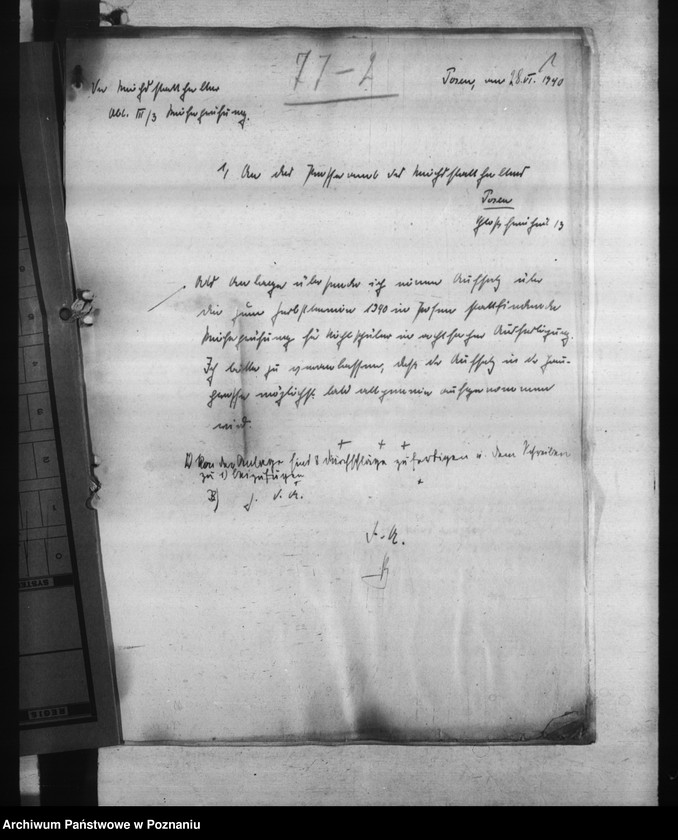 77-2
Posen, am 28.VI. 1940
Der Reichsstatthalter
Abt. III/3 Reifeprüfung.
1, An das Presseamt des Reichsstatthalters
Posen
Schloßfreiheit 13
Als Anlage übersende ich einen Aufsatz über
die zum Herbsttermin 1940 in Posen stattfindende
Reifeprüfung für Nichtschüler in achtfacher Ausfertigung.
Ich bitte zu veranlassen, daß der Aufsatz in der Gau-
presse möglichst bald allgemein aufgenommen
wird.
2) Von der Anlage sind 8 Durchschläge zu fertigen u. dem Schreiben
zu 1) beizufügen
3) z. d. A.
I. A.
SYSTE
REGIS
Archiwum Państwowe w Poznaniu